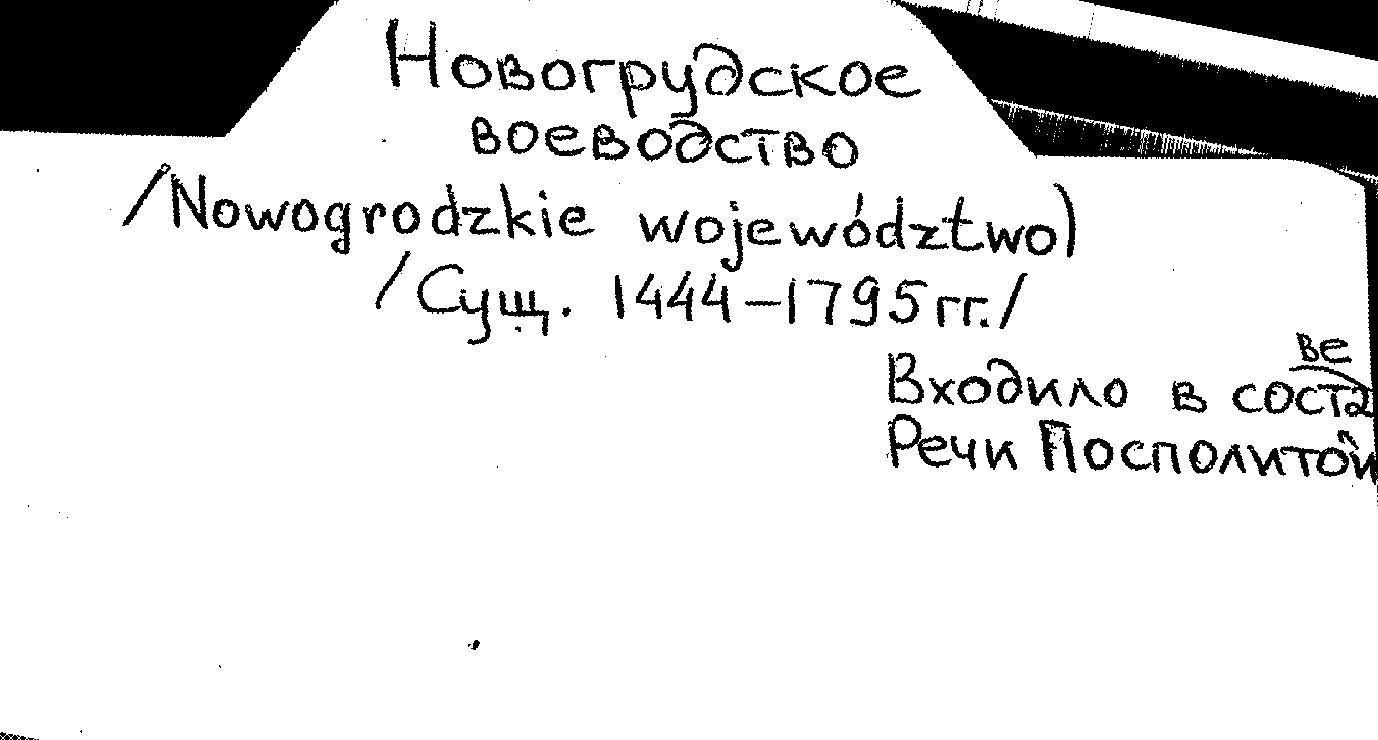 Новогрудское
воеводство
/Nowogrodzkie województwo)
/Сущ. 1444–1795 гг./
Входило в составе
Речи Посполитой